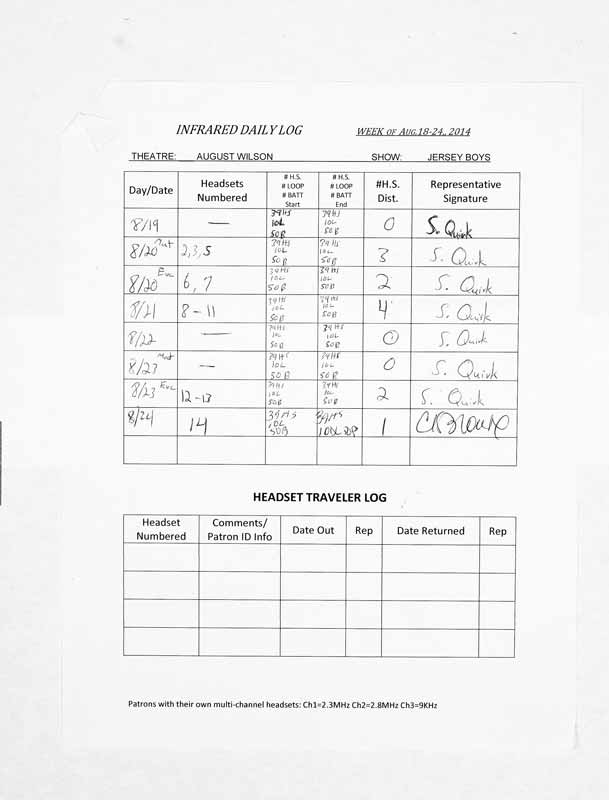 INFRARED DAILY LOG WEEK OF AUG.18-24,, 2014
THEATRE: AUGUST WILSON SHOW: JERSEY BOYS
Day/Date Headsets Numbered # H.S. # LOOP # BATT Start # H.S. # LOOP # BATT End #H.S. Dist. Representative Signature
8/19 — 39HS 10L 50B 39HS 10L 50B 0 S. Quirk
8/20 Mat 2,3,5 39HS 10L 50B 39HS 10L 50B 3 S. Quirk
8/20 Eve 6,7 39HS 10L 50B 39HS 10L 50B 2 S. Quirk
8/21 8-11 39HS 10L 50B 39HS 10L 50B 4 S. Quirk
8/22 — 39HS 10L 50B 39HS 10L 50B 0 S. Quirk
8/23 Mat — 39HS 10L 50B 39HS 10L 50B 0 S. Quirk
8/23 Eve 12-13 39HS 10L 50B 39HS 10L 50B 2 S. Quirk
8/24 14 39HS 10L 50B 39HS 1
HEADSET TRAVELER LOG
Headset Numbered Comments/ Patron ID Info Date Out Rep Date Returned Rep
Patrons with their own multi-channel headsets: Ch1=2.3MHz Ch2=2.8MHz Ch3=9KHz